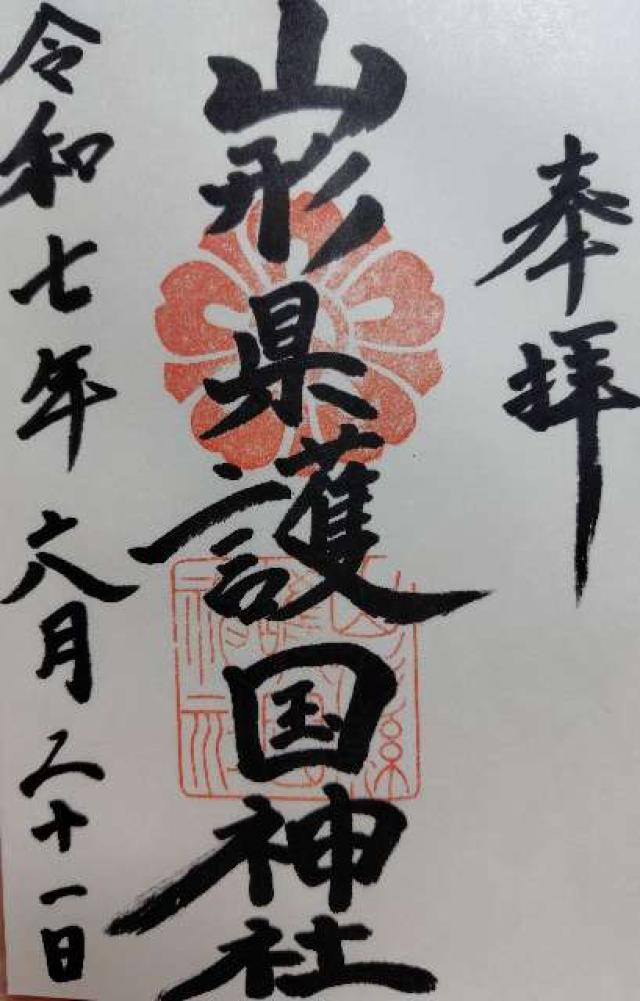 奉拝
山形県護国神社
令和七年六月二十一日